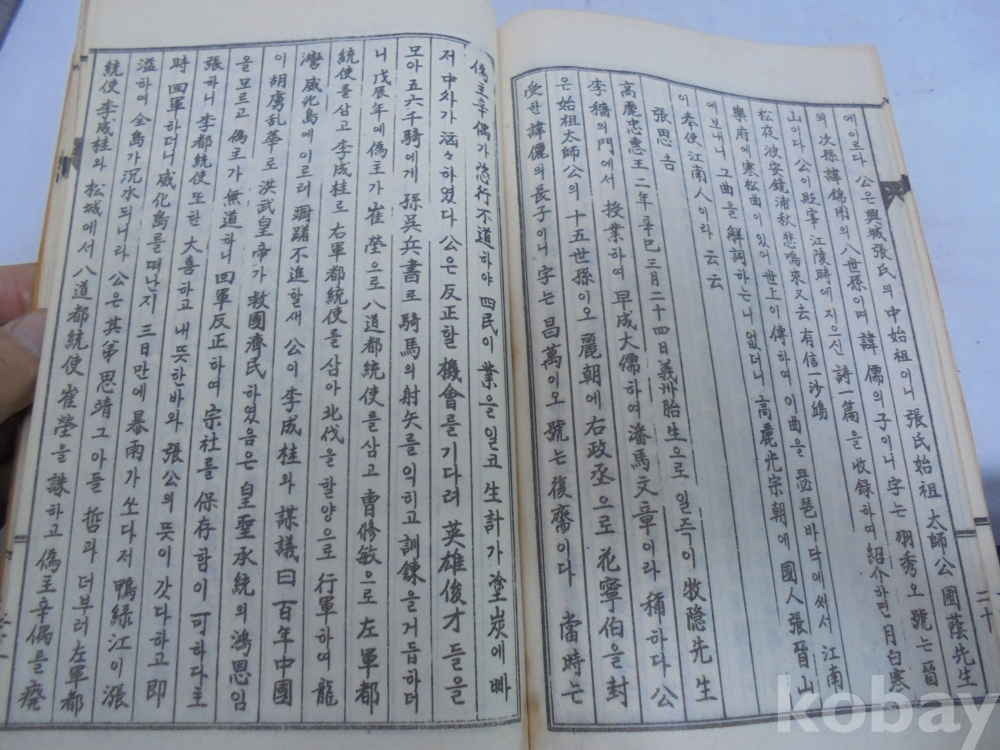 에이르다 公은 興城張氏의 中始祖이니 張氏始祖 太師公 國蔭先生
의 次孫諱錦用의 八世孫이며 諱 儒의 子이니 字는 明秀오 號는 晉
山이다 公이 貶宰 江陵時에 지으신 詩一篇을 收錄하여 紹介하면 月白寒
松夜 波安鏡浦秋 悲鳴來又去 有信一沙鷗
樂府에 寒松曲이 있어 世上이 傳하여 이 曲을 瑟琵바닥에 써서 江南
에 보내니 그 曲을 解詞하는니 없더니 高麗光宗朝에 國人 張晉山
이 奉使江南人이라 云云
張思吉
高麗忠惠王二年 辛巳三月二十四日 義州胎生으로 일즉이 牧隐先生
李穡의 門에서 授業하여 早成大儒하여 潘馬文章이라 稱하다 公
은 始祖太師公의 十五世孫이오 麗朝에 右政丞으로 花寧伯을 封
受한 諱儷의 長子이니 字는 昌萬이오 號는 復齋이다 當時는
僞主辛偶가 恣行不道하야 四民이 業을 일코 生計가 塗炭에 빠
저 中차가 汹々하였다 公은 反正할 機會를 기다려 英雄俊才들을
모아 五六千騎에게 孫吳兵書로 騎馬의 射矢를 익히고 訓鍊을 거듭하더
니 戊辰年에 僞主가 崔瑩으로 八道都統使를 삼고 曺修敏으로 左軍都
統使를 삼고 李成桂로 右軍都統使를 삼아 北伐을 할양으로 行軍하여 龍
灣威化島에 이르러 躊躇不進할새 公이 李成桂와 謀議曰 百年中國
이 胡虜乱華로 洪武皇帝가 救國濟民하였음은 皇聖承統의 鴻恩임
을 모르고 僞主가 無道하니 回軍反正하여 宗社를 保存함이 可하다 主
張하니 李都統使 또한 大喜하고 내뜻한바와 張公의 뜻이 갓다하고 即
時 回軍하더니 威化島를 떠난지 三日만에 暴雨가 쏘다저 鴨綠江이 漲
溢하여 全島가 沉水되니라 公은 其弟 思靖 그 아들 哲라 더부러 左軍都
統使 李成桂와 松城에서 八道都統使 崔瑩을 誅하고 僞主辛偶를 癈
二十
kobay